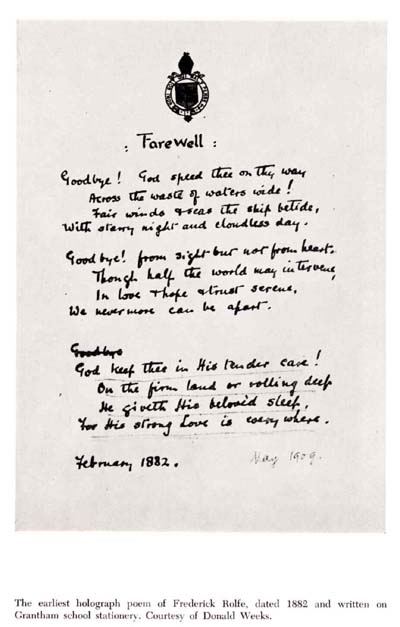 : Farewell :
Goodbye! God speed thee on thy way
Across the waste of waters wide!
Fair winds & seas the ship betide,
With starry night and cloudless day.
Good bye! from sight but not from heart.
Though half the world may intervene,
In love & hope & trust serene,
We nevermore can be apart.
Goodbye
God keep thee in His tender care!
On the firm land or rolling deep
He giveth His beloved sleep,
For His strong Love is everywhere.
February 1882. May 1909.
The earliest holograph poem of Frederick Rolfe, dated 1882 and written on
Grantham school stationery. Courtesy of Donald Weeks.